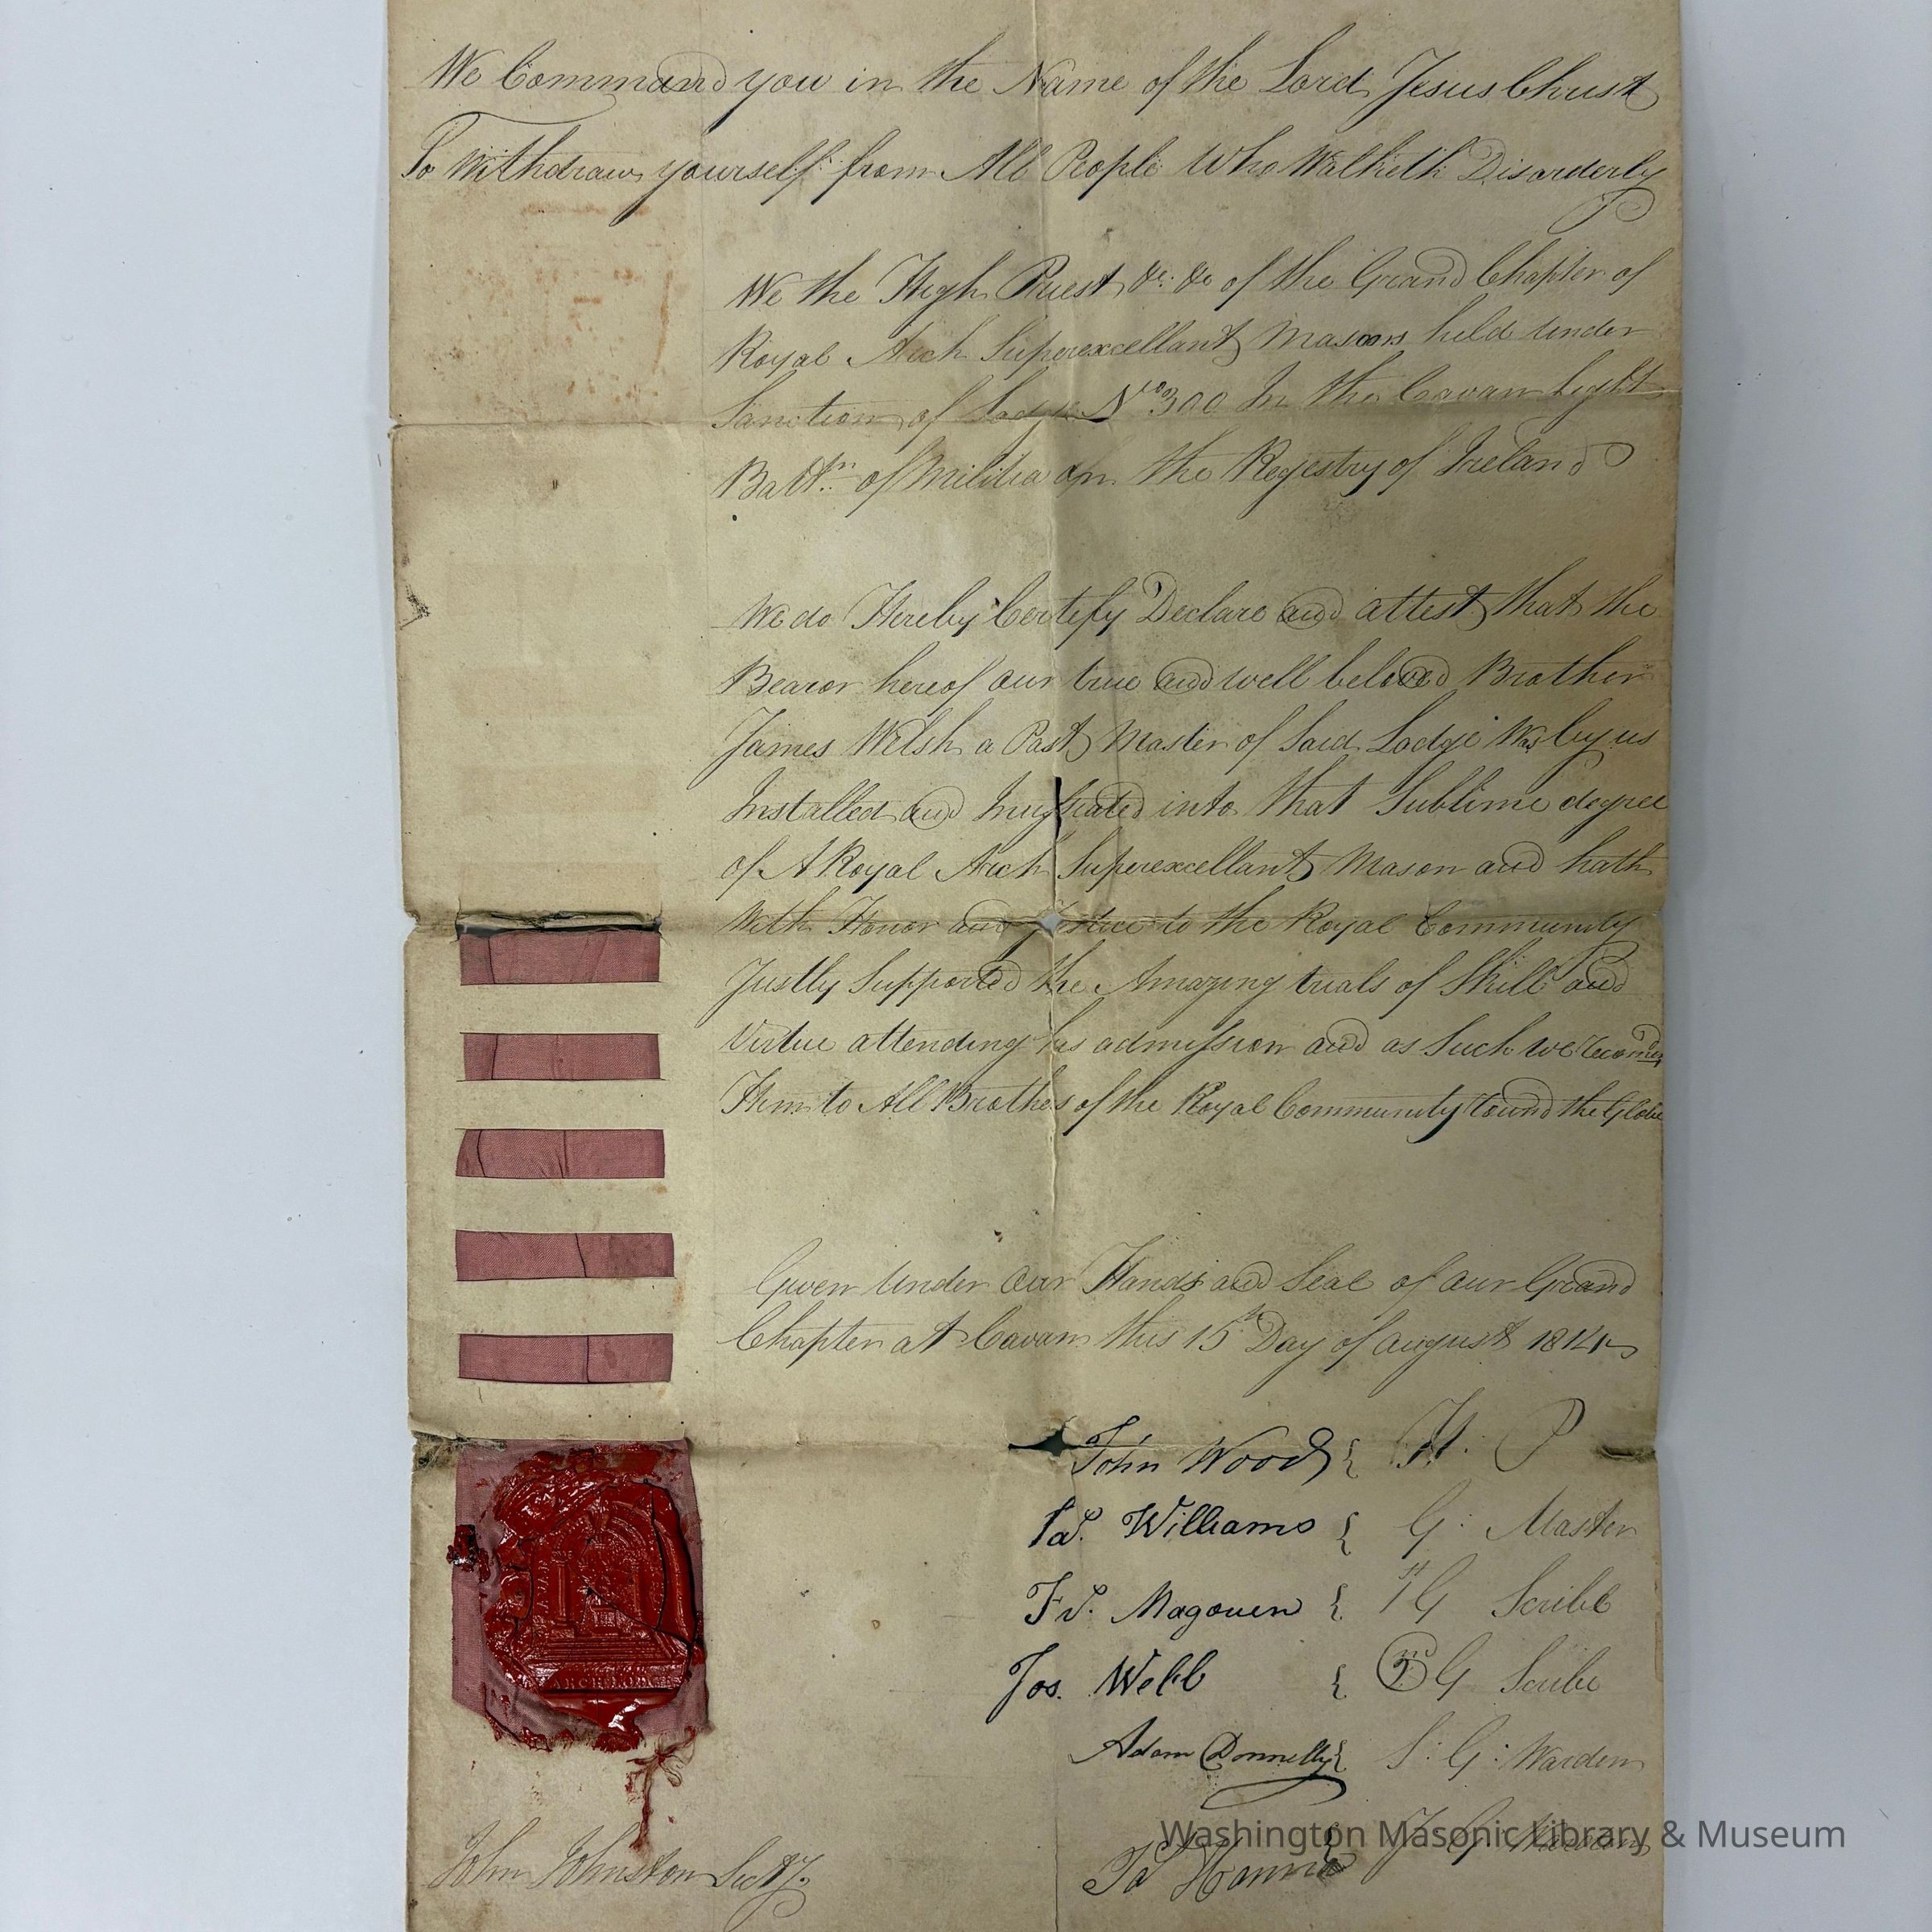 We Command you in the Name of the Lord Jesus Christ
To Withdraw yourself from All People Who Walketh Disorderly
We the High Priest &c. &c of the Grand Chapter of
Royal Arch Superexcellant Masons held under
Sanction of Lodge No 300 In the Cavan Light
Battn. of Militia on the Regestry of Ireland
We do Hereby Certefy Declare and attest that the
Bearor hereof our true and well beloved Brother
James Welsh a Past Master of Said Lodge Was by us
Installed and into that Sublime degree
of A Royal Arch Superexcellant Mason and hath
With Honor and Justice to the Royal Community
Justly Supported the Amazing trials of Skill and
Virtue attending his admission and as Such we
Him to All Brothes of the Royal Community round the Globe
Given Under Our Hands and Seal of our Grand
Chapter at Cavan this 15th Day of august 1814
John Wood { H. P
Williams { G: Master
Fd. Magouen { 1st G Scribe
Jos. Webb { 2nd G Scribe
Adam Donnelly { S: G: Warden
Hanna { J G Warden
John Johnston Secty.
ARCH LODGE
Washington Masonic Library & Museum